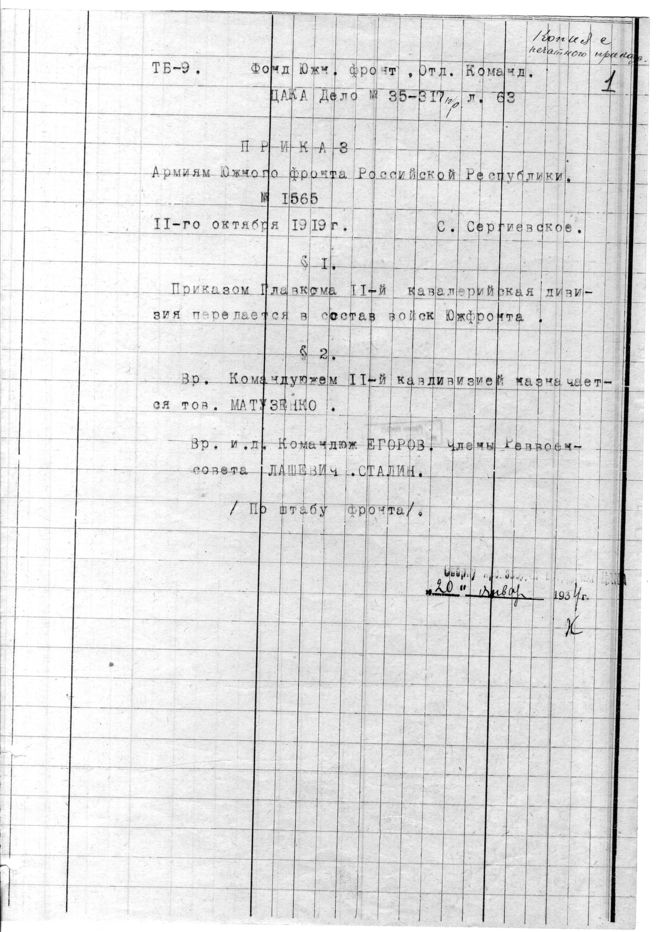 Копия с
печатного приказа.
1
ТБ-9. Фонд Южн. фронт, Отд. Команд.
ЦАКА Дело № 35-317пр л. 63
П Р И К А З
Армиям Южного фронта Российской Республики.
№ 1565
II-го октября 1919г. С. Сергиевское.
§ I.
Приказом Главкома II-й кавалерийская диви-
зия передается в состав войск Южфронта .
§ 2.
Вр. Командуюжем II-й кавдивизией назначает-
ся тов. МАТУЗЕНКО .
Вр. и.д. Командюж ЕГОРОВ. Члены Реввоен-
совета ЛАШЕВИЧ .СТАЛИН.
/ По штабу фронта/.
„20" январ 1934г.